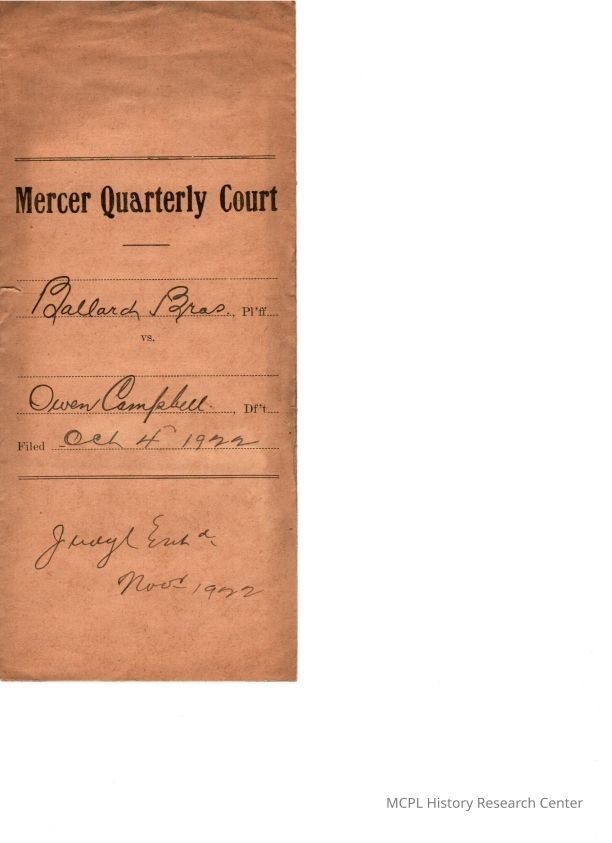 Mercer Quarterly Court
Ballard Bros., Pl'ff
vs.
Owen Campbell., Df't
Filed Oct 4 1922
Judgt Ent'd.
Nov 1922
MCPL History Research Center